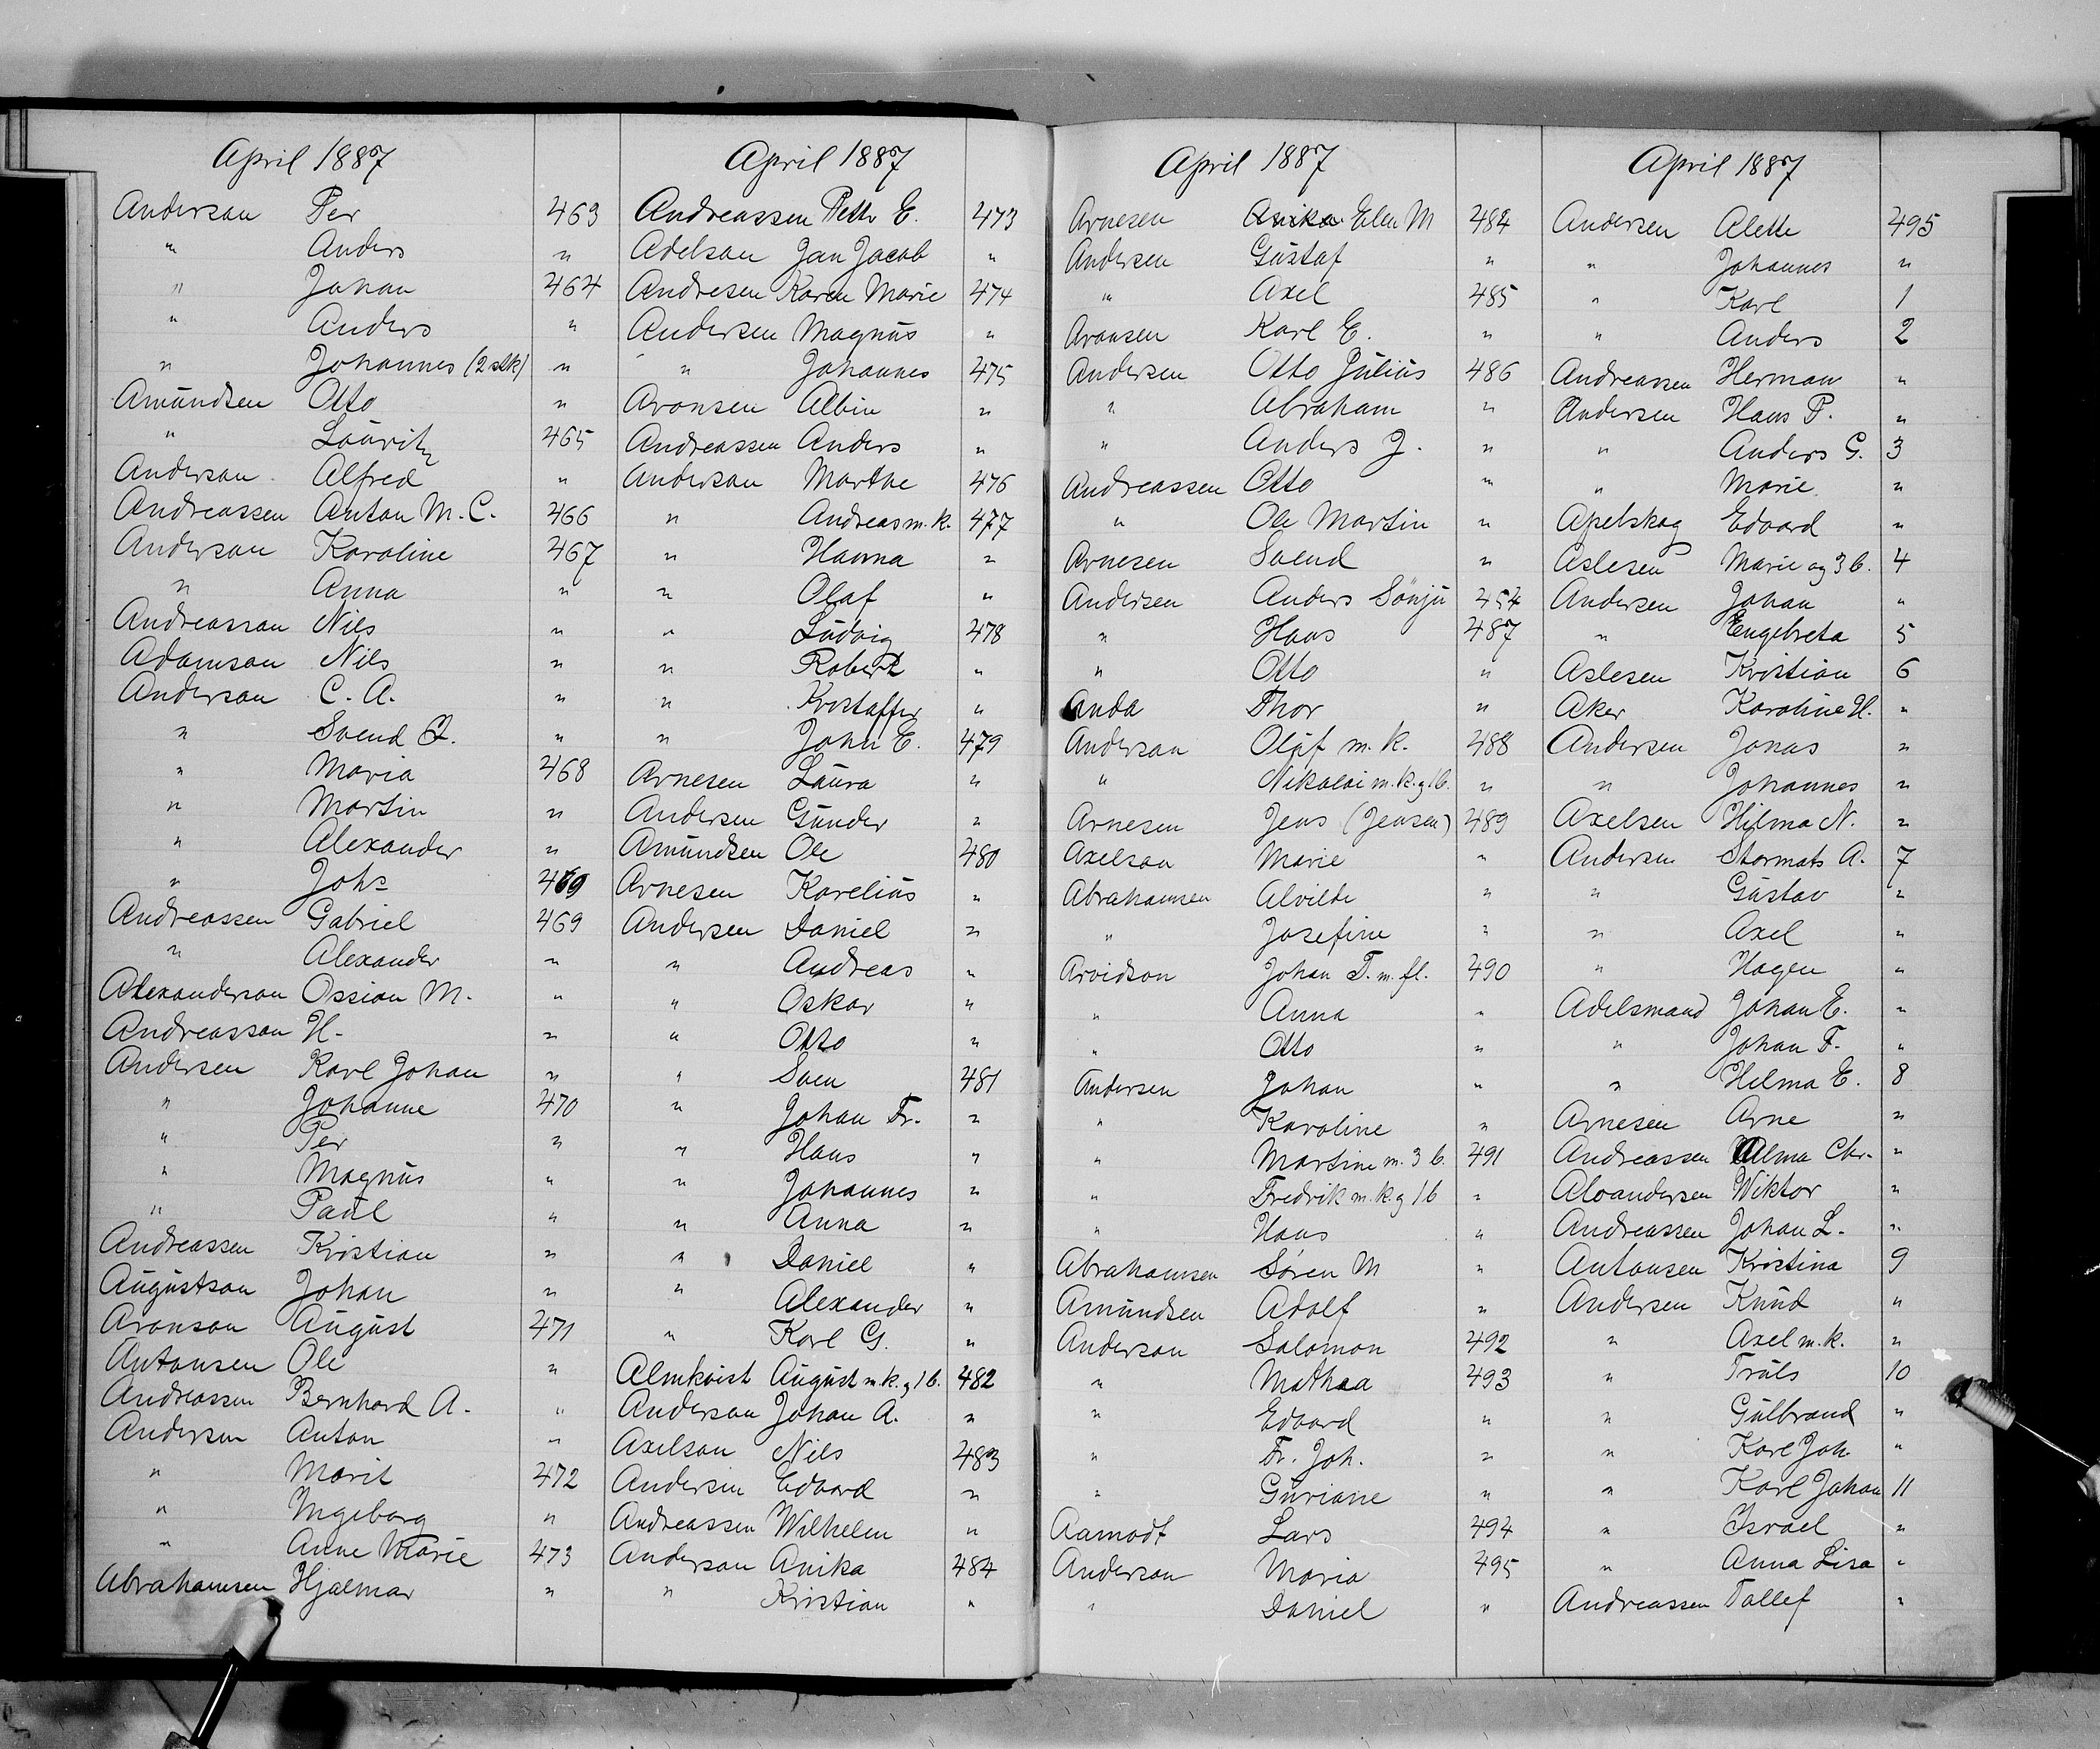 April 1887
Anderson Per 463
" Anders "
" Johan 464
" Anders "
" Johannes (2 stk) "
Amundsen Otto "
" Lauritz 465
Anderson Alfred "
Andreassen Anton M. C. 466
Anderson Karoline 467
" Anna "
Andreasson Nils "
Adamson Nils "
Anderson C. A. "
" Svend "
" Maria 468
" Martin "
" Alexander "
" Johs 469
Andreassen Gabriel 469
" Alexander "
Alexanderson Ossian M. "
Andreasson H. "
Andersen Karl Johan "
" Johanne 470
" Per "
" Magnus "
" Paul "
Andreassen Kristian "
Augustson Johan "
Aronson August 471
Antonsen Ole "
Andreassen Bernhard A. "
Andersen Anton "
" Marit 472
" Ingeborg "
" Anne Marie 473
Abrahamsen Hjalmar "
April 1887
Andreassen Pettr E. 473
Adelson Jan Jacob "
Andresen Karen Marie 474
Andersen Magnus "
" Johannes 475
Aronsen Albin "
Andreassen Anders "
Anderson Marthe 476
" Andreas m. k. 477
" Hanna "
" Olaf "
" Ludvig 478
" Robert "
" Kristaffer "
" John E. 479
Arnesen Laura "
Andersen Gunder "
Amundsen Ole 480
Arnesen Karelius "
Andersen Daniel "
" Andreas "
" Oskar "
" Otto "
" Sven 481
" Johan Fr. "
" Hans "
" Johannes "
" Anna "
" Daniel "
" Alexander "
" Karl G. "
Almkvist August m. k. g 1 b. 482
Anderson Johan A. "
Axelson Nils 483
Andersen Edvard "
Andreassen Wilhelm "
Anderson Anika 484
" Kristian "
April 1887
Arnesen Anika Elen M 484
Andersen Gustaf "
" Axel 485
Aronsen Karl E. "
Andersen Otto Julius 486
" Abraham "
" Anders J. "
Andreassen Otto "
" Ole Martin "
Arnesen Svend "
Andersen Anders Sönju 454
" Hans 487
" Otto "
Anda Thor "
Anderson Oluf m. k. 488
" Nikolai m. k. g 1 b. "
Arnesen Jens (Jensen) 489
Axelson Marie "
Abrahamsen Alvilde "
" Josefine "
Arvidson Johan T. m. fl. 490
" Anna "
" Otto "
Andersen Johan "
" Karoline "
" Martine m. 3 b. 491
" Fredrik m. k. g 1 b "
" Hans "
Abrahamsen Søren M "
Amundsen Adolf "
Anderson Salomon 492
" Mathea 493
" Edvard "
" Fr. Joh. "
" Guriane "
Aamodt Lars 494
Anderson Maria 495
" Daniel "
April 1887
Andersen Alette 495
" Johannes "
" Karl 1
" Anders 2
Andreassen Herman "
Andersen Hans P. "
" Anders G. 3
" Marie "
Apelskog Edvard "
Aslesen Marie og 3 b. 4
Andersen Johan "
" Engebreta 5
Aslesen Kristian 6
Aker Karoline H. "
Andersen Jonas "
" Johannes "
Axelsen Hilma N. "
Andersen Stormats A. 7
" Gustav "
" Axel "
" Hagen "
Adelsmand Johan E. "
" Johan F. "
" Hilma E. 8
Arnesen Arne "
Andreassen Alma Chr. "
Aloandersen Wiktor "
Andreassen Johan L. "
Antonsen Kristina 9
Andersen Knud "
" Axel m. k. "
" Truls 10
" Gulbrand "
" Karl Joh. "
" Karl Johan 11
" Israel "
" Anna Lisa "
Andreassen Tallef "